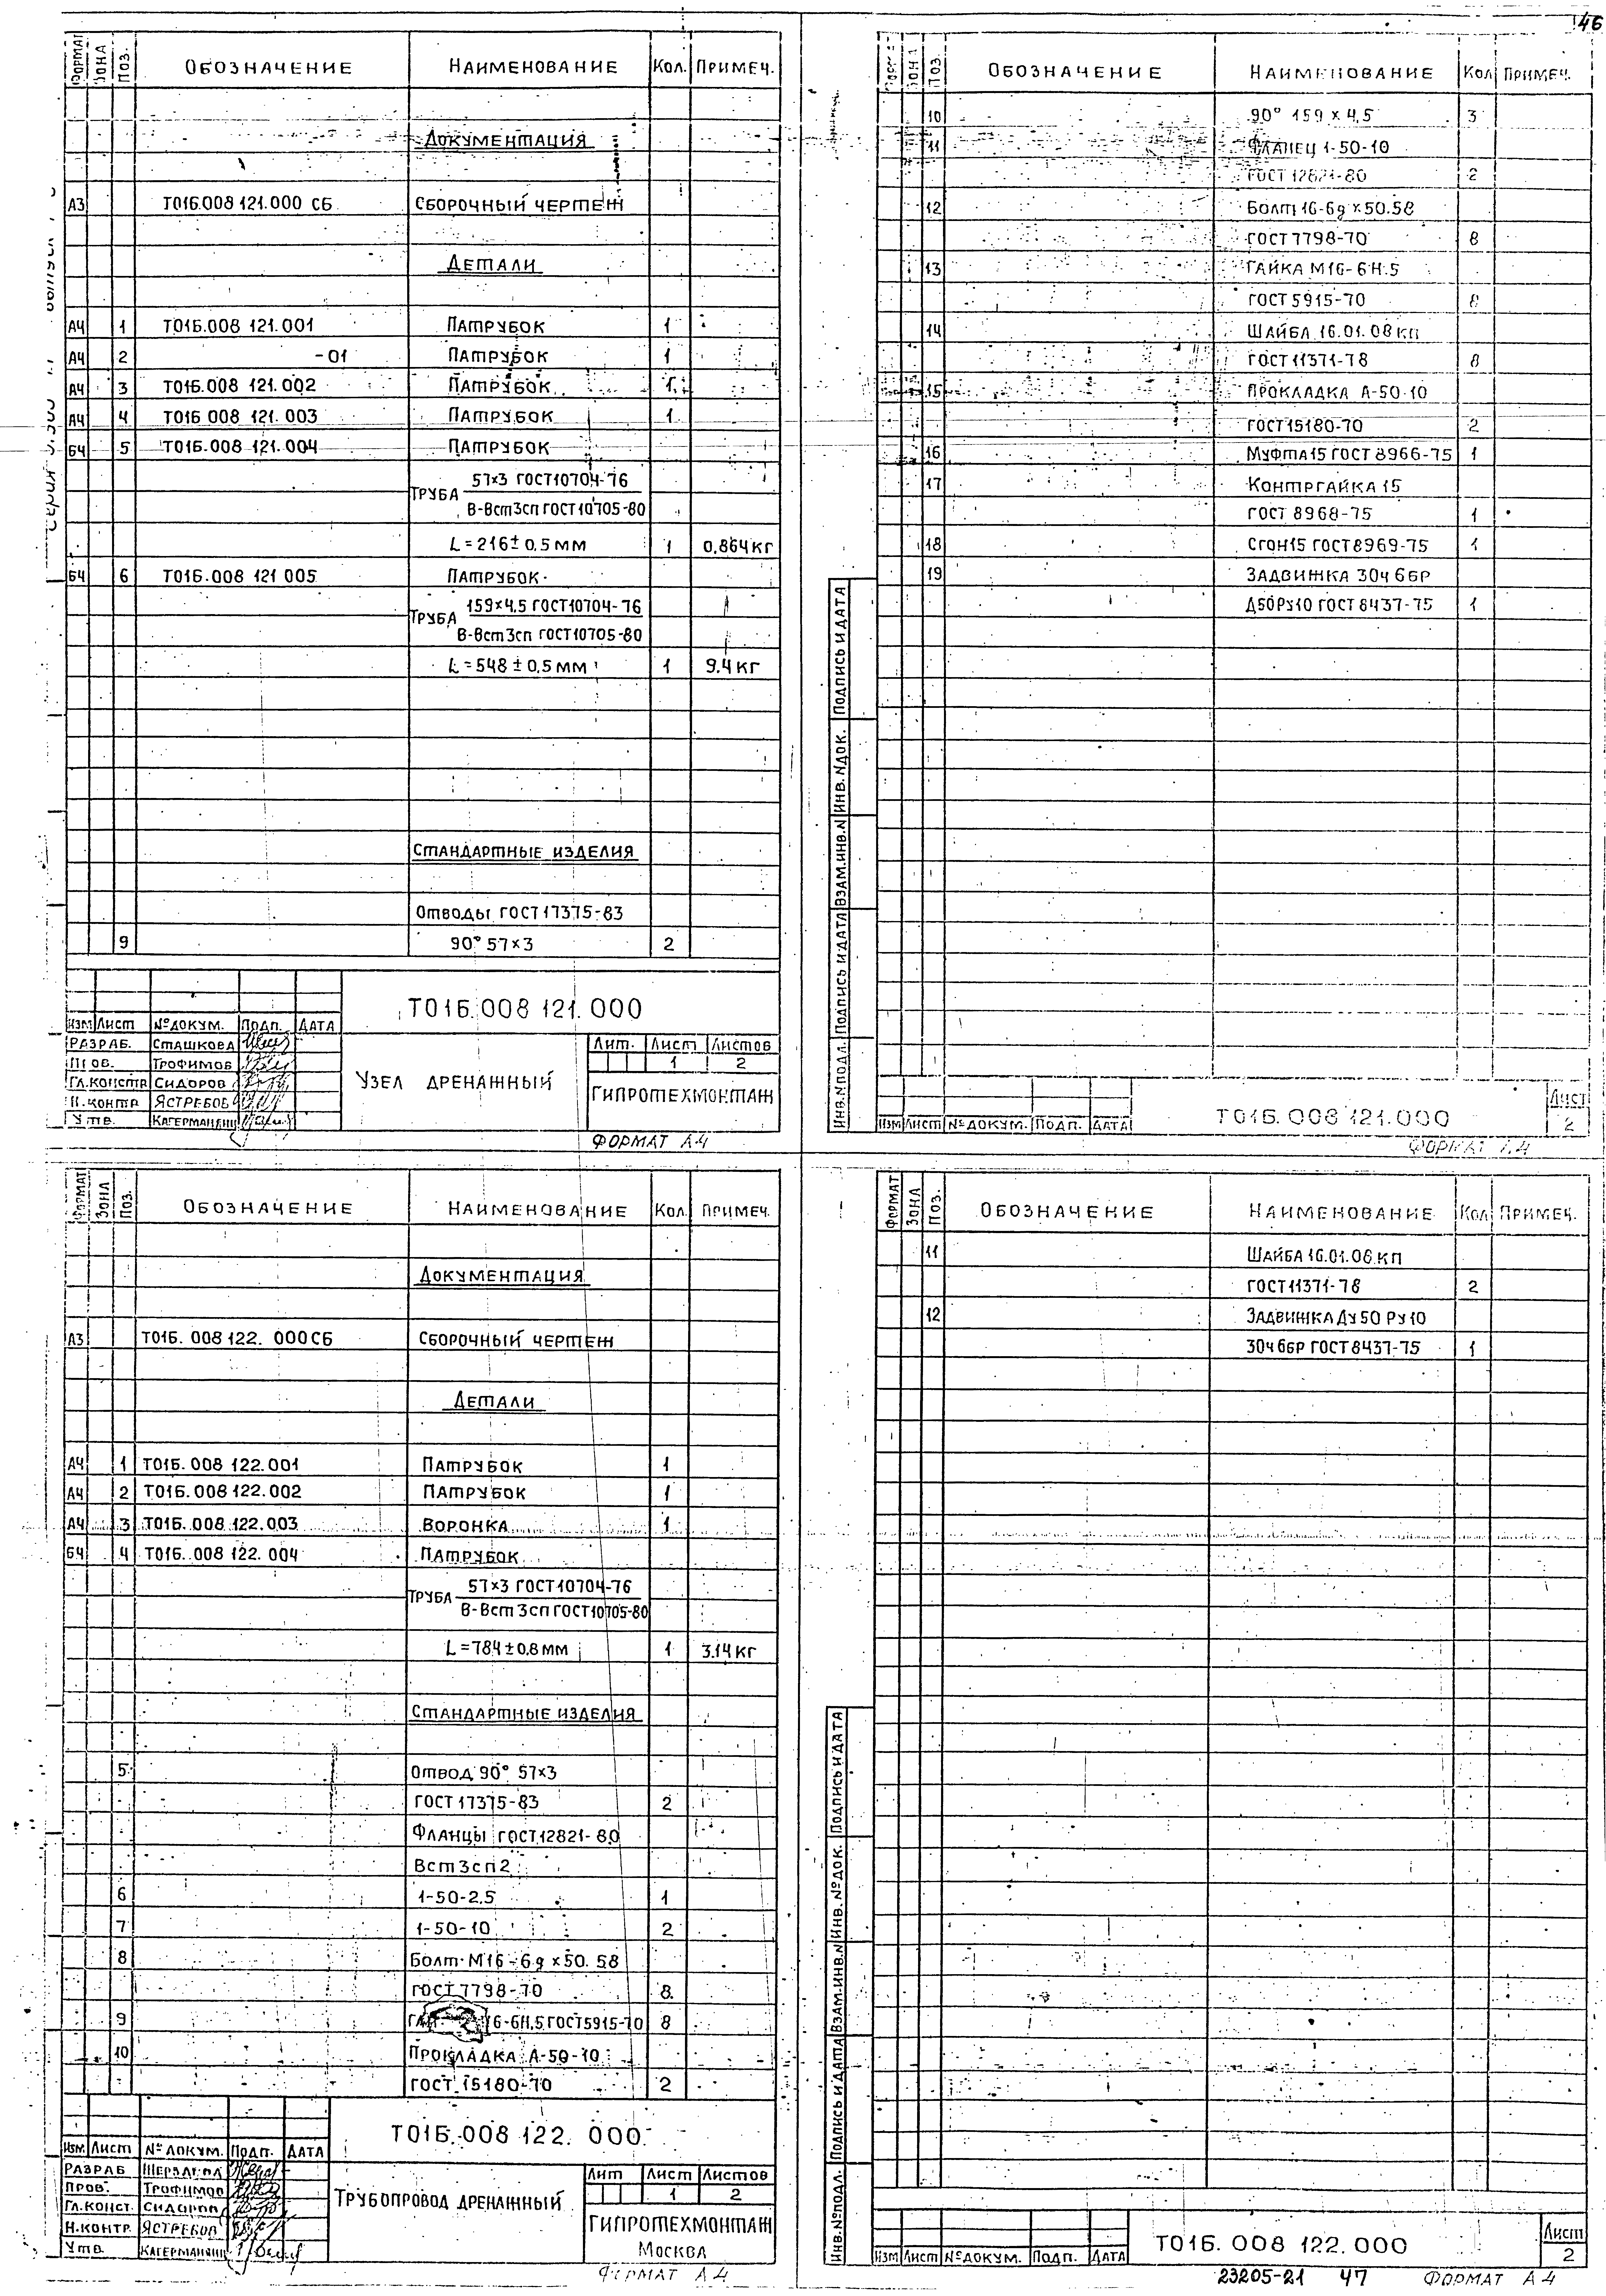 46
ФОРМАТ ЗОНА ПОЗ. ОБОЗНАЧЕНИЕ НАИМЕНОВАНИЕ КОЛ. ПРИМЕЧ.
ДОКУМЕНТАЦИЯ
А3 Т01Б.008 121.000 СБ СБОРОЧНЫЙ ЧЕРТЕЖ
ДЕТАЛИ
А4 1 Т01Б.008 121.001 ПАТРУБОК 1
А4 2 -01 ПАТРУБОК 1
А4 3 Т01Б.008 121.002 ПАТРУБОК 1
А4 4 Т01Б.008 121.003 ПАТРУБОК 1
БЧ 5 Т01Б.008 121.004 ПАТРУБОК
ТРУБА 57×3 ГОСТ10704-76
В-Вст3сп ГОСТ10705-80
L=216±0,5 мм 1 0,864 кг
БЧ 6 Т01Б.008 121 005 ПАТРУБОК
ТРУБА 159×4,5 ГОСТ10704-76
В-Вст3сп ГОСТ10705-80
L=548±0,5 мм 1 9,4 кг
СТАНДАРТНЫЕ ИЗДЕЛИЯ
Отводы ГОСТ17375-83
9 90° 57×3 2
Т01Б.008 121.000
ИЗМ ЛИСТ № ДОКУМ. ПОДП. ДАТА
РАЗРАБ. СТАШКОВА
ПРОВ. ТРОФИМОВ
ГЛ.КОНСТР СИДОРОВ
Н.КОНТР ЯСТРЕБОВ
УТВ.
УЗЕЛ ДРЕНАЖНЫЙ
ЛИТ. ЛИСТ ЛИСТОВ
1 2
ГИПРОТЕХМОНТАЖ
ФОРМАТ А4
ЗОНА ПОЗ. ОБОЗНАЧЕНИЕ НАИМЕНОВАНИЕ КОЛ ПРИМЕЧ.
10 90° 159×4,5 3
11 ФЛАНЕЦ 1-50-10
ГОСТ 12821-80 2
12 Болт 16-6g×50.58
ГОСТ 7798-70 8
13 ГАЙКА М16-6Н.5
ГОСТ 5915-70 8
14 ШАЙБА 16.01.08 кп
ГОСТ 11371-78 8
15 ПРОКЛАДКА А-50-10
ГОСТ 15180-70 2
16 Муфта 15 ГОСТ 8966-75 1
17 КОНТРГАЙКА 15
ГОСТ 8968-75 1
18 Сгон 15 ГОСТ 8969-75 1
19 ЗАДВИЖКА 30ч 6бр
Д50Ру10 ГОСТ 8437-75 1
ИНВ.№ПОДЛ. ПОДПИСЬ И ДАТА ВЗАМ.ИНВ.№ ИНВ.№ДОК. ПОДПИСЬ И ДАТА
ИЗМ ЛИСТ № ДОКУМ. ПОДП. ДАТА
Т01Б.008 121.000
ЛИСТ
2
ФОРМАТ А4
ФОРМАТ ЗОНА ПОЗ. ОБОЗНАЧЕНИЕ НАИМЕНОВАНИЕ КОЛ. ПРИМЕЧ.
ДОКУМЕНТАЦИЯ
А3 Т01Б.008 122.000 СБ СБОРОЧНЫЙ ЧЕРТЕЖ
ДЕТАЛИ
А4 1 Т01Б.008 122.001 ПАТРУБОК 1
А4 2 Т01Б.008 122.002 ПАТРУБОК 1
А4 3 Т01Б.008 122.003 ВОРОНКА 1
БЧ 4 Т01Б.008 122.004 ПАТРУБОК
ТРУБА 57×3 ГОСТ10704-76
В-Вст3сп ГОСТ10705-80
L=784±0,8 мм 1 3.14 кг
СТАНДАРТНЫЕ ИЗДЕЛИЯ
5 Отвод 90° 57×3
ГОСТ 17375-83 2
Фланцы ГОСТ12821-80
Вст3сп2
6 1-50-2,5 1
7 1-50-10 2
8 Болт М16-6g×50.58
ГОСТ 7798-70 8
9 16-6Н.5 ГОСТ5915-70 8
10 ПРОКЛАДКА А-50-10
ГОСТ 15180-70 2
Т01Б.008 122.000
ИЗМ ЛИСТ № ДОКУМ. ПОДП. ДАТА
РАЗРАБ
ПРОВ. ТРОФИМОВ
ГЛ.КОНСТ. СИДОРОВ
Н.КОНТР. ЯСТРЕБОВ
УТВ.
ТРУБОПРОВОД ДРЕНАЖНЫЙ
ЛИТ ЛИСТ ЛИСТОВ
1 2
ГИПРОТЕХМОНТАЖ
МОСКВА
ФОРМАТ А4
ФОРМАТ ЗОНА ПОЗ. ОБОЗНАЧЕНИЕ НАИМЕНОВАНИЕ КОЛ ПРИМЕЧ.
11 ШАЙБА 16.01.08 КП
ГОСТ11371-78 2
12 ЗАДВИЖКА Ду 50 Ру 10
30ч 6бр ГОСТ 8437-75 1
ИНВ.№ПОДЛ. ПОДПИСЬ И ДАТА ВЗАМ.ИНВ.№ ИНВ.№ДОК. ПОДПИСЬ И ДАТА
ИЗМ ЛИСТ № ДОКУМ. ПОДП. ДАТА
Т01Б.008 122.000
ЛИСТ
2
23205-21 47 ФОРМАТ А4